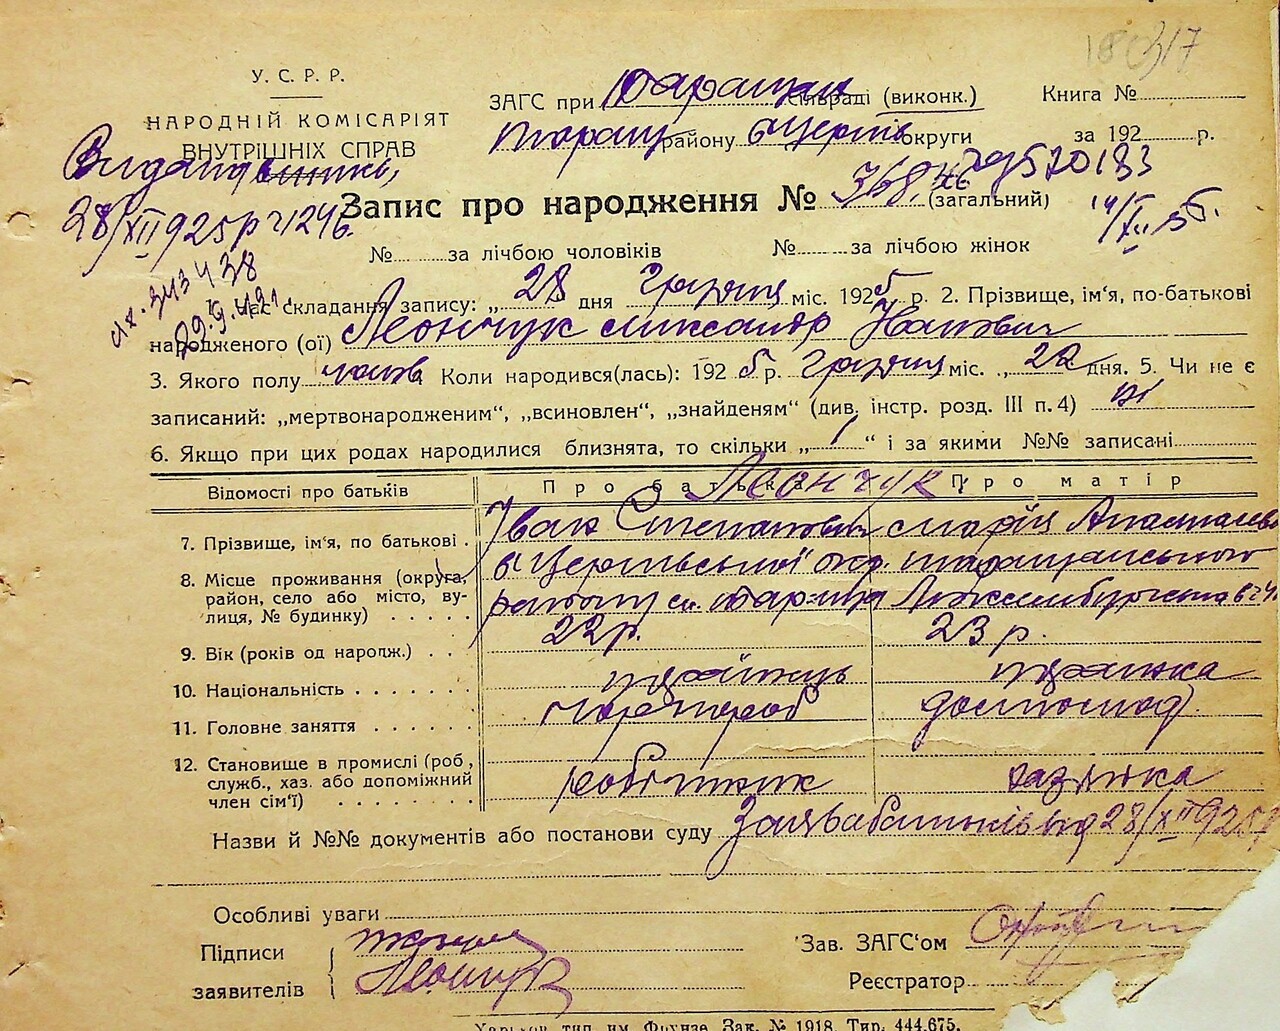 18 317
У. С. Р. Р.
НАРОДНІЙ КОМІСАРІЯТ
ВНУТРІШНІХ СПРАВ
ЗАГС при Таращан сільраді (виконк.) Книга №
Таращ району б Церків округи за 192 р.
28/XII 925р ч 1246
Запис про народження № 368. (загальний)
14/XII
№ за лічбою чоловіків № за лічбою жінок
Час складання запису: „ 28 дня Грудня міс. 1925 р. 2. Прізвище, ім'я, по-батькові
народженого (ої) Леончук Олександр Іванович
3. Якого полу Коли народився(лась): 192 5 р. Грудня міс. „ 22 дня. 5. Чи не є
записаний: „мертвонародженим“, „всиновлен“, „знайденям“ (див. інстр. розд. III п. 4) ні
6. Якщо при цих родах народилися близнята, то скільки „ 1 “ і за якими №№ записані
Відомості про батьків Про батька Леончук Про матір
7. Прізвище, ім'я, по батькові Іван Степанович Марія
8. Місце проживання (округа, район, село або місто, вулиця, № будинку) б Церківської окр. Таращанського
району м. Тараща
9. Вік (років од народж.) 22 р. 23 р.
10. Національність українець українка
11. Головне заняття чорнороб
12. Становище в промислі (роб, служб., хаз. або допоміжний член сім'ї) робітник хазяйка
Назви й №№ документів або постанови суду Заява батьків від 28/XII 925р
Особливі уваги
Підписи
заявителів Леончук
Зав. ЗАГС'ом
Реєстратор
Харьков, тип. им. Фрунзе. Зак. № 1918. Тир. 444.675.